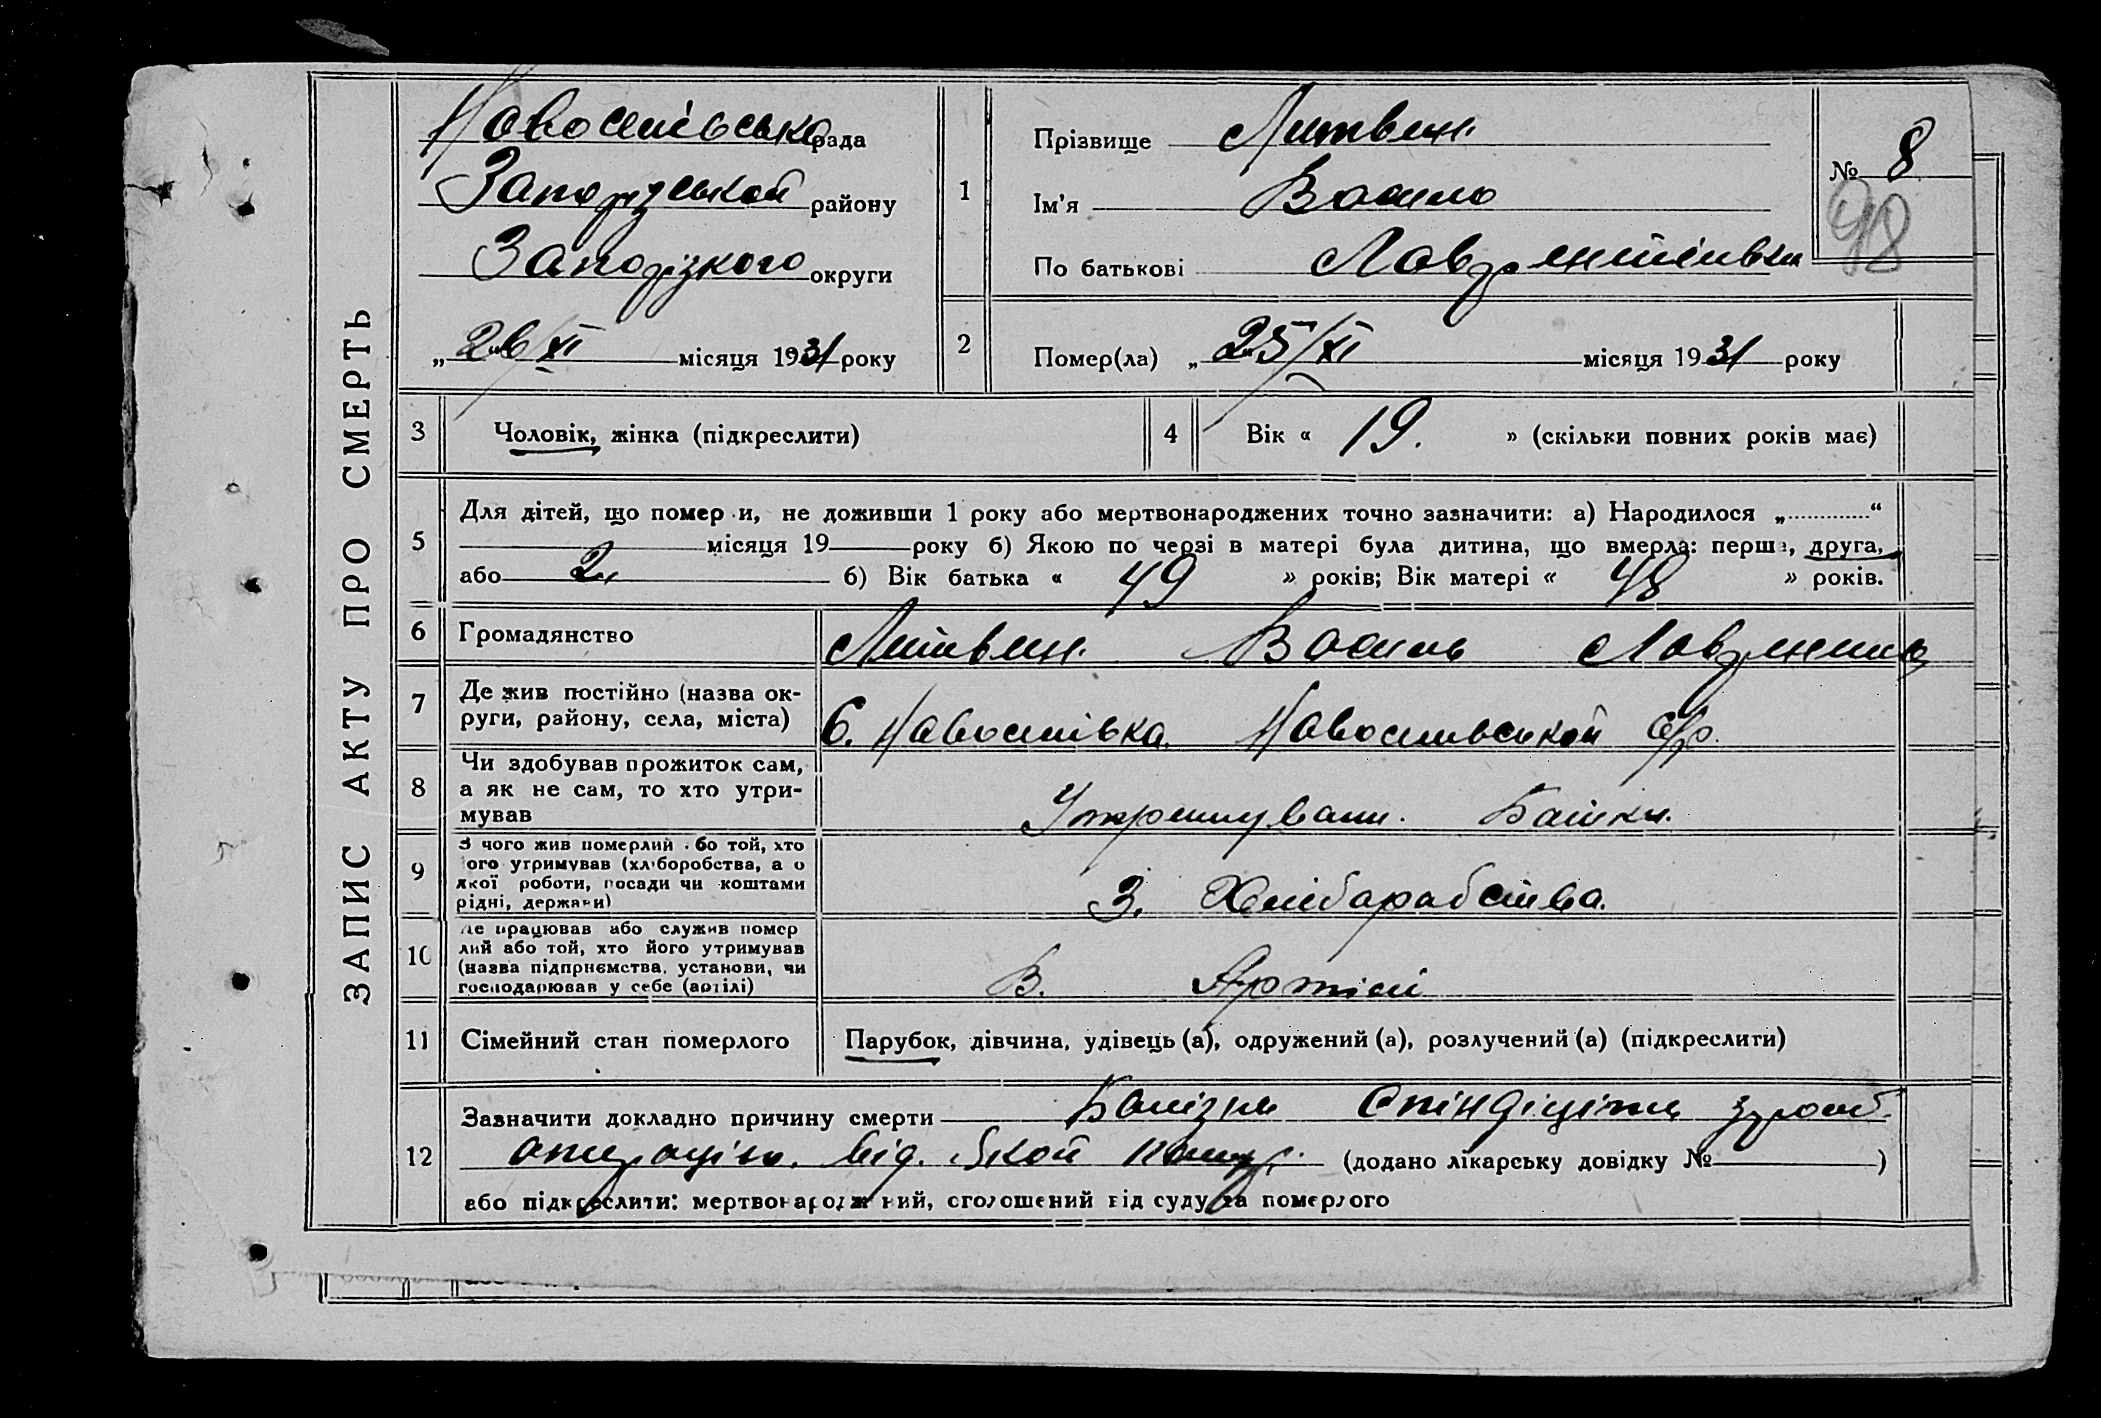 ЗАПИС АКТУ ПРО СМЕРТЬ
Новоселівська рада
Запорізькой району
Запорізкого округи
„26/XI місяця 1931 року
1
Прізвище Литвин.
Ім'я Василь
По батькові Лаврентіівич
№ 8
98
2
Помер(ла) „25/XI місяця 1931 року
3 Чоловік, жінка (підкреслити)
4 Вік « 19. » (скільки повних років має)
5
Для дітей, що помер и, не доживши 1 року або мертвонароджених точно зазначити: а) Народилося „ “
місяця 19 року б) Якою по черзі в матері була дитина, що вмерла: перша, друга,
або 2. б) Вік батька « 49 » років; Вік матері « 48 » років.
6 Громадянство Литвин. Василь
7 Де жив постійно (назва ок-
руги, району, села, міста) С. Новоселівка. Новоселівськой с/р.
8 Чи здобував прожиток сам,
а як не сам, то хто утри-
мував Утримували. Батьки.
9 З чого жив померлий або той, хто
ого утримував (хліборобства, а о
якої роботи, посади чи коштами
рідні, держави) З. Хлібарабства.
10 Де працював або служив помер
лий або той, хто його утримував
(назва підприємства, установи, чи
господарював у себе (артілі) В. Артілі
11 Сімейний стан померлого Парубок, дівчина, удівець(а), одружений(а), розлучений(а) (підкреслити)
12 Зазначити докладно причину смерти Болізни
операцію. від. (додано лікарську довідку № )
або підкреслити: мертвонароджений, оголошений від суду за померлого